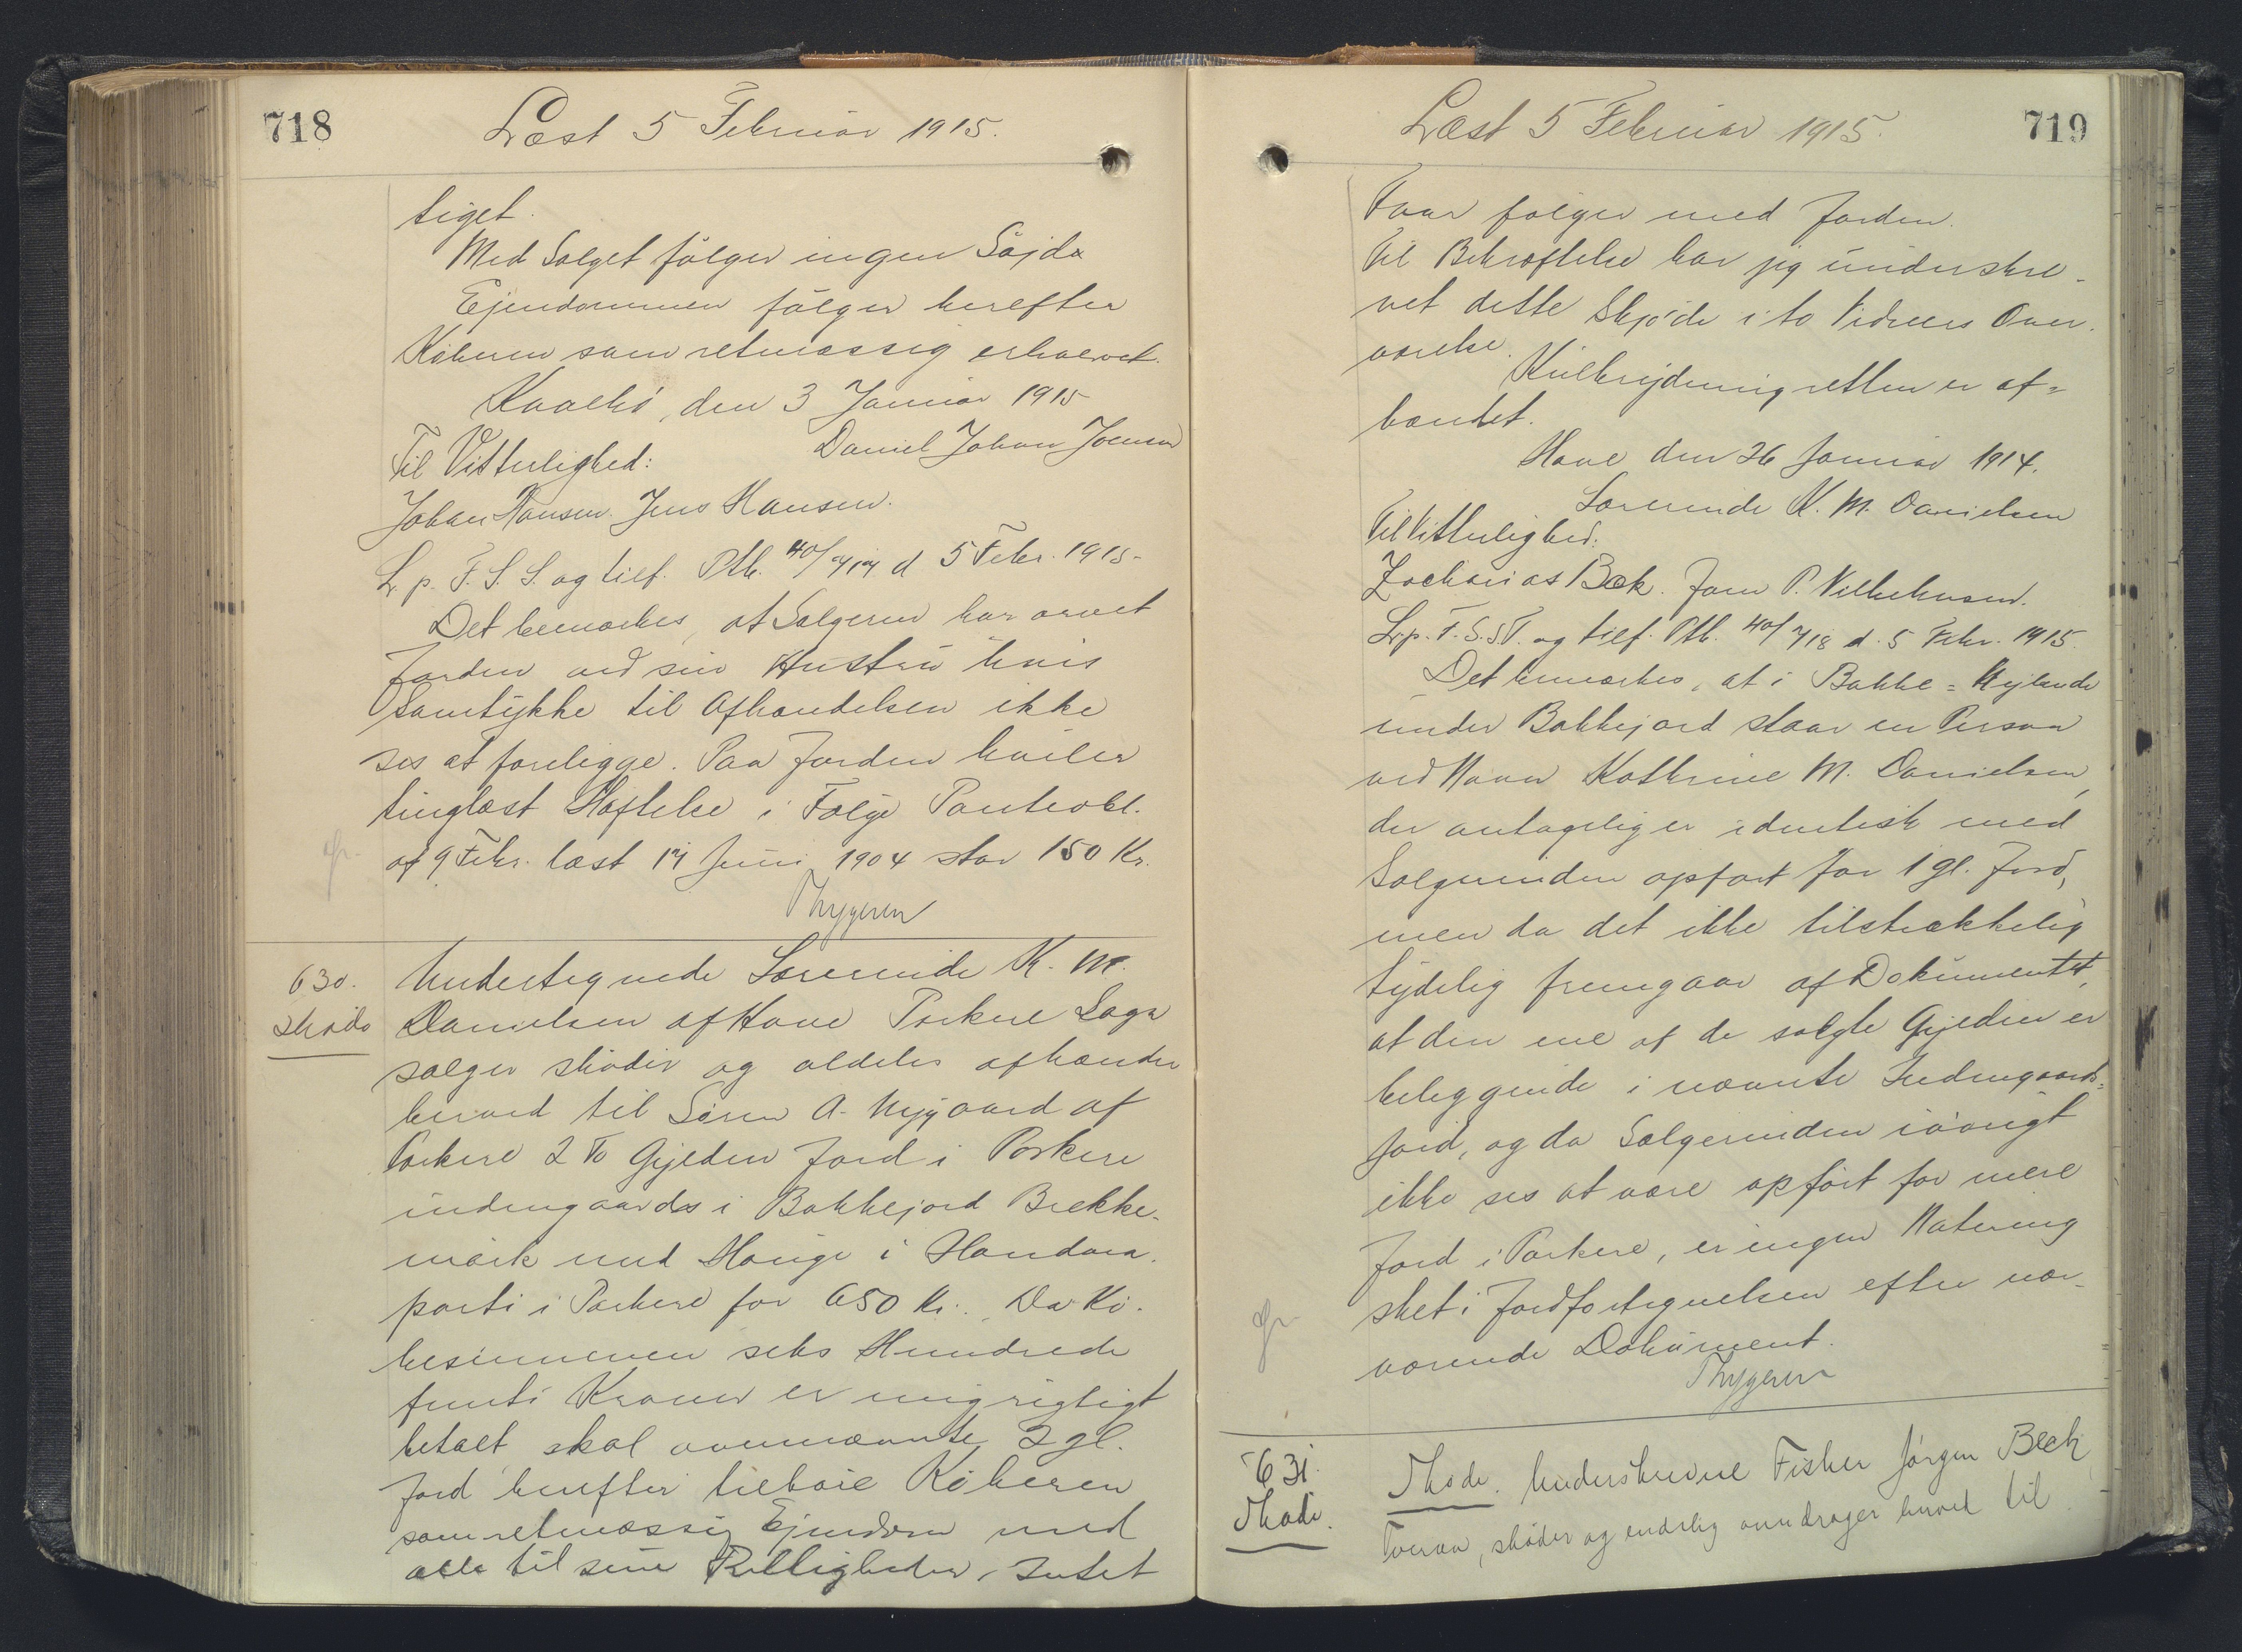 718
Læst 5 Februar 1915.
tiget.
Med Salget følger ingen Søjdx
Ejendommen følger herefter
Køberen som retmæssig erhvervet.
Kvalbø, den 3 Januar 1915
Daniel Johan Joensen
Til Vitterlighed:
Johan Hansen. Jens Hansen.
L. p. F. S. S. og tilf. Ptb. 40/717 d 5 Febr. 1915.
Det bemærkes, at Sælgeren har arvet
Jorden ved sin Hustru hvis
Samtykke til Afhændelsen ikke
ses at foreligge. Paa Jorden hviler
tinglæst Hæftelse i Følge Panteobl.
af 9 Febr. læst 17 Juni 1904 stor 150 Kr.
Thygesen
630.
Skøde
Undertegnede Lærerinde K. M.
Danielsen af Hove Porkere Sogn
sælger skøder og aldeles afhænder
herved til Søren A. Nygaard af
Porkere 2 To Gylden Jord i Porkere
indengaards i Bakkejord Brekke-
mørk med Hauge i Handara-
parti i Porkere for 650 Kr. Da Kø-
besummen seks Hundrede
femti Kroner er mig rigtigt
betalt skal ovennævnte 2 gl.
Jord herefter tilhøre Køberen
som retmæssig Ejendom med
alle til sine Rettigheder, Intet
719
Læst 5 Februar 1915.
Faar følger med Jorden.
Til Bekræftelse har jeg underskre-
vet dette Skjøde i to Vidners Over-
værelse.
Kulbrydningretten er af-
hændet.
Hove den 26 Januar 1914.
Lærerinde K. M. Danielsen
Til Vitterlighed:
Zacharias Bæk. Joen P. Vilhelmsen.
L. p. F. S. ST. og tilf. Ptb. 40/718 d. 5 Febr. 1915.
Det bemærkes, at i Bakke = Hejlende
under Bakkejord staar en Person
ved Navn Kathrine M. Danielsen,
der antagelig er identisk med
Sælgerinden opført for 1 gl. Jord,
men da det ikke tilstrækkelig
tydelig fremgaar af Dokumentet,
at den ene af de solgte Gylden er
beliggende i nævnte Indengaards-
jord, og da Sælgerinden iøvrigt
ikke ses at være opført for mere
Jord i Porkere, er ingen Notering
sket i Jordfortegnelsen efter nær-
værende Dokument.
Thygesen
631.
Skøde.
Skøde. Underskrevne Fisker Jørgen Beck
Tveraa, skøder og endelig overdrager herved til